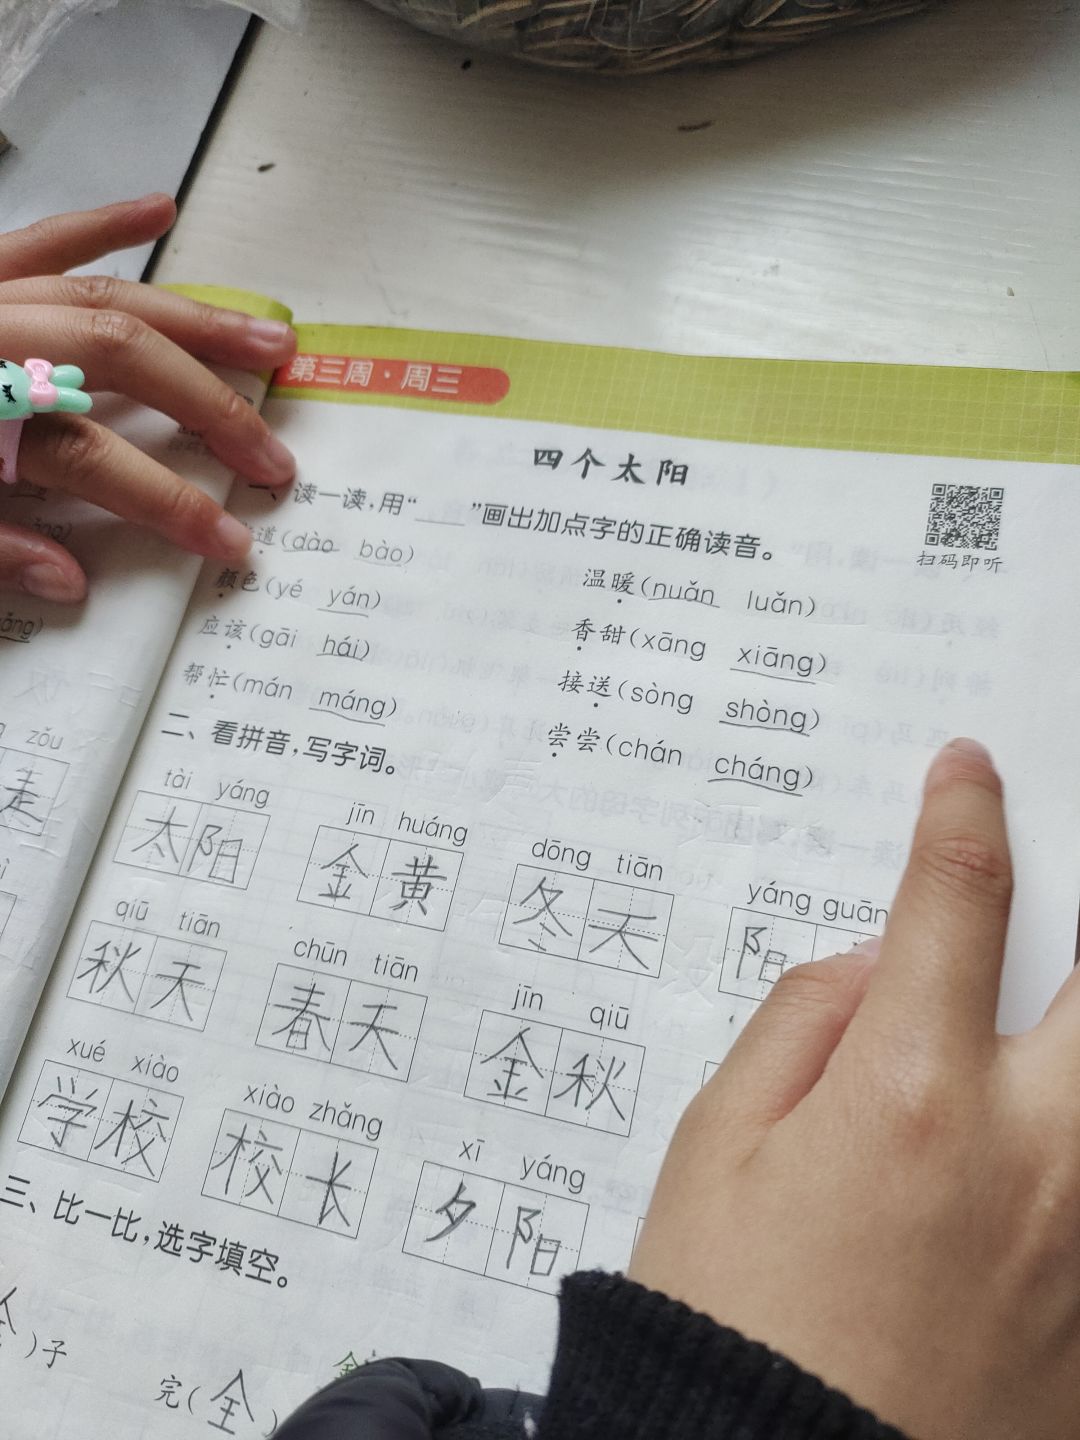 第三周·周三
四个太阳
扫码即听
一、读一读,用“___”画出加点字的正确读音。
道(dào bào) 温暖(nuǎn luǎn)
颜色(yé yán) 香甜(xāng xiāng)
应该(gāi hái) 接送(sòng shòng)
帮忙(mán máng) 尝尝(chán cháng)
二、看拼音,写字词。
tài yáng jīn huáng dōng tiān yáng guān
太阳 金黄 冬天 阳
qiū tiān chūn tiān jīn qiū
秋天 春天 金秋
xué xiào xiào zhǎng xī yáng
学校 校长 夕阳
三、比一比,选字填空。
)子 完(全)
zǒu
走